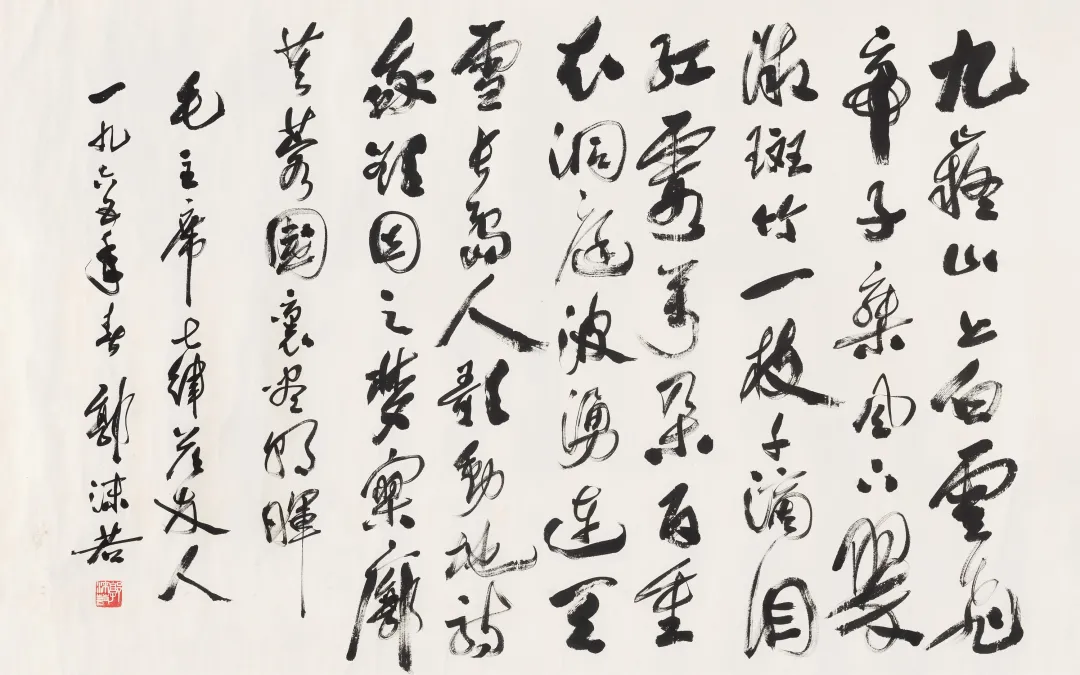 九嶷山上白雲飛
帝子乘風下翠
微斑竹一枝千滴泪
紅霞萬朵百重
衣洞庭波湧連天
雪長島人歌動地詩
我欲因之夢寥廓
芙蓉國裏盡朝暉
毛主席七律答友人
一九六五年春 郭沫若
郭沫若